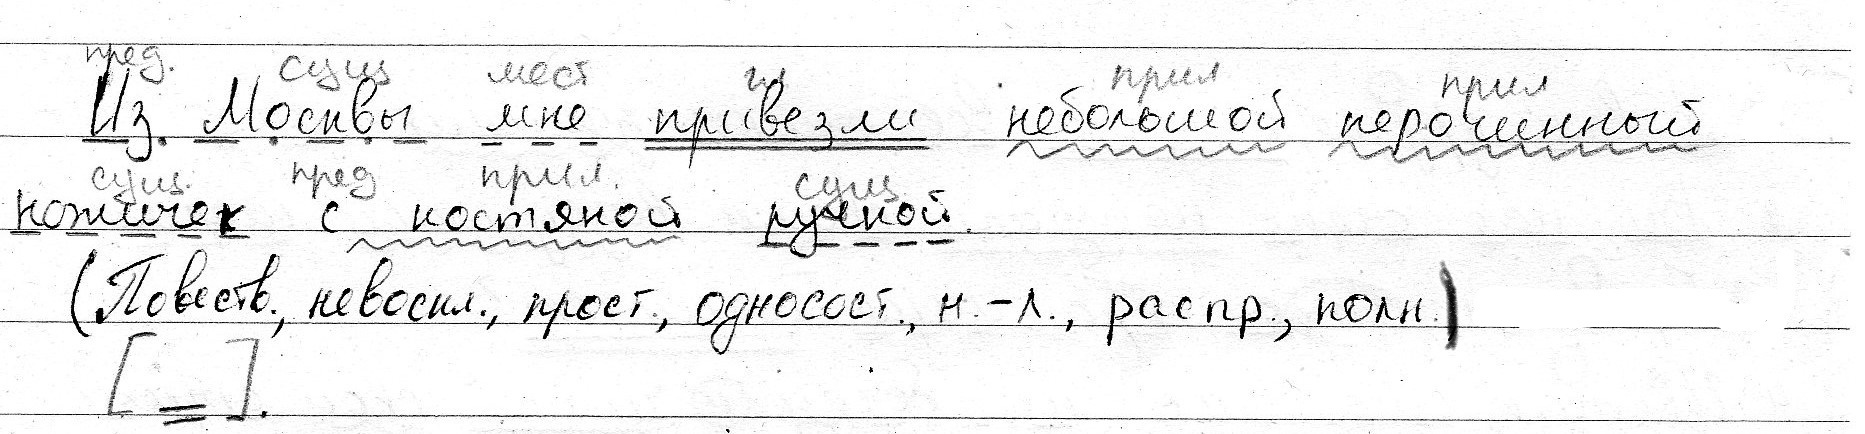 пред. сущ мест гл прил прил
Из Москвы мне привезли небольшой перочинный
сущ. пред прил. сущ
ножичек с костяной ручкой.
(Повеств., невоскл., прост., односост., н.-л., распр., полн.)
[ = ].